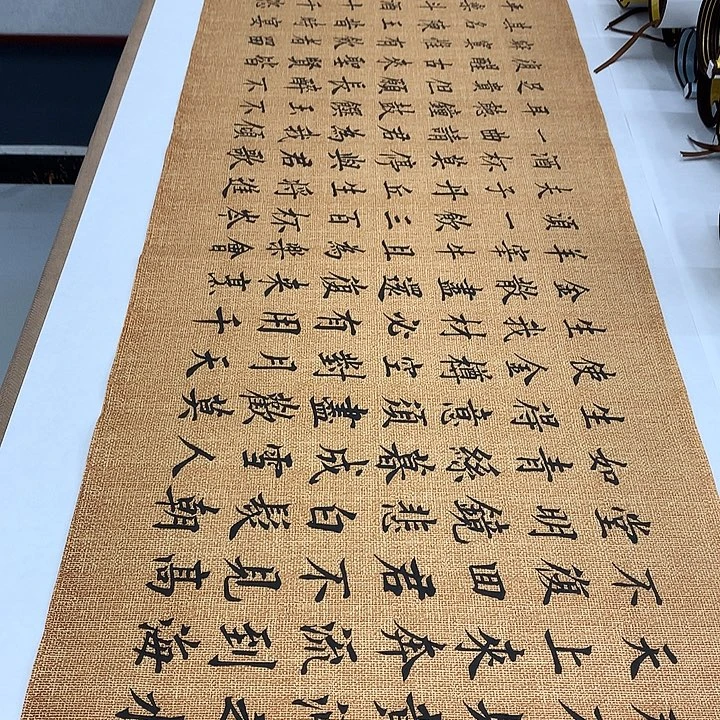 君不見黃河之水
天上來奔流到海
不復回君不見高
堂明鏡悲白髮朝
如青絲暮成雪人
生得意須盡歡莫
使金樽空對月天
生我材必有用千
金散盡還復來
羊宰牛且為樂會
須一飲三百杯岑
夫子丹丘生將進
酒杯莫停與君歌
一曲請君為我
耳聽鐘鼓饌玉不
足貴但願長醉不
醒古來聖賢皆
寞有飲者
其名陳王昔時宴